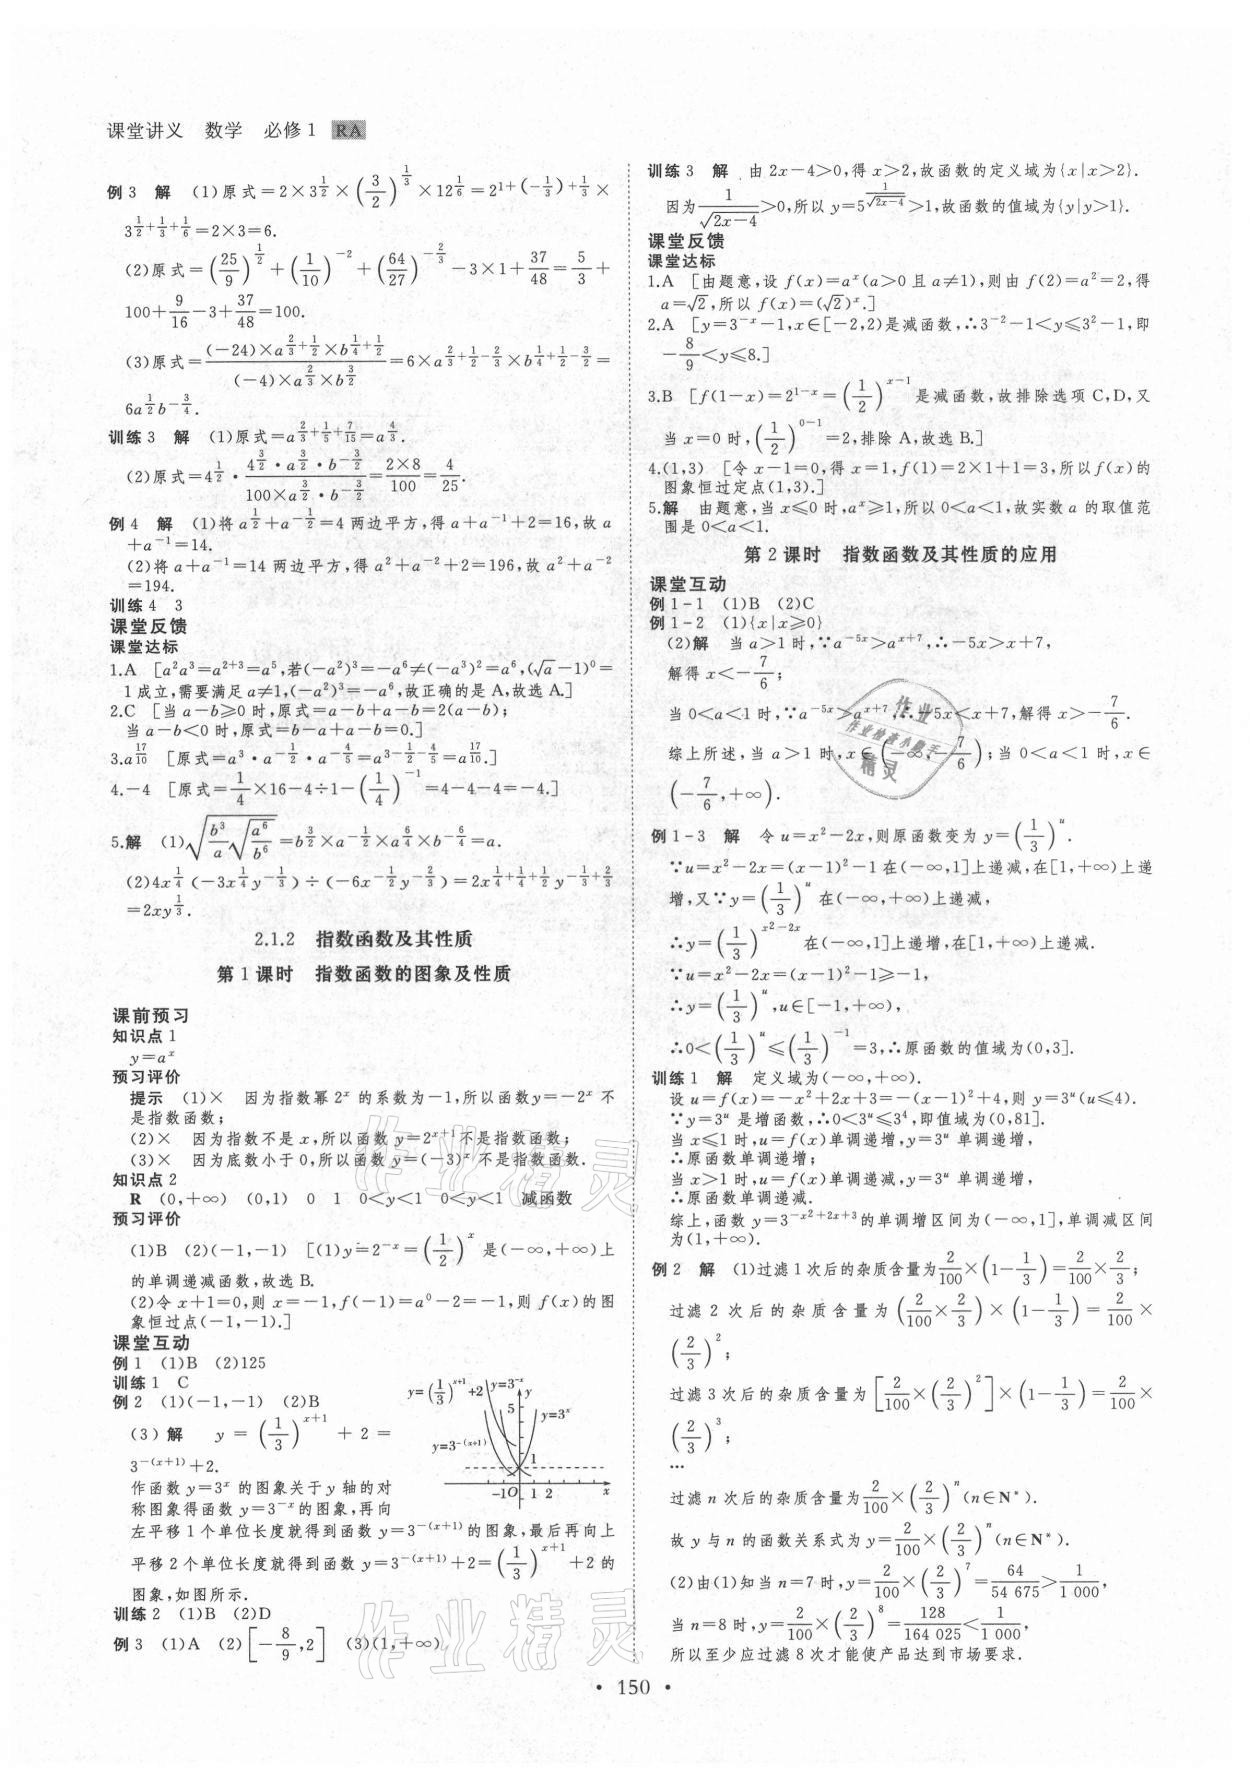 课堂讲义　数学　必修1　RA
例3　解　(1)原式=2×3^{1/2}×(3/2)^{1/3}×12^{1/6}=2^{1+(-1/3)+1/3}×
3^{1/2+1/3+1/6}=2×3=6.
(2)原式=(25/9)^{1/2}+(1/10)^{-2}+(64/27)^{-2/3}-3×1+37/48=5/3+
100+9/16-3+37/48=100.
(3)原式=(-24)×a^{2/3+1/2}×b^{1/4+1/2}/(-4)×a^{2/3}×b^{3/2}=6×a^{2/3+1/2-2/3}×b^{1/4+1/2-3/2}=
6a^{1/2}b^{-3/4}.
训练3　解　(1)原式=a^{2/3+1/5+7/15}=a^{4/3}.
(2)原式=4^{1/2}·4^{3/2}·a^{3/2}·b^{-3/2}/100×a^{3/2}·b^{-3/2}=2×8/100=4/25.
例4　解　(1)将a^{1/2}+a^{-1/2}=4两边平方,得a+a^{-1}+2=16,故a
+a^{-1}=14.
(2)将a+a^{-1}=14两边平方,得a²+a^{-2}+2=196,故a²+a^{-2}
=194.
训练4　3
课堂反馈
课堂达标
1.A　[a²a³=a^{2+3}=a⁵,若(-a²)³=-a⁶≠(-a³)²=a⁶,(√a-1)⁰=
1成立,需要满足a≠1,(-a²)³=-a⁶,故正确的是A,故选A.]
2.C　[当a-b≥0时,原式=a-b+a-b=2(a-b);
当a-b<0时,原式=b-a+a-b=0.]
3.a^{17/10}　[原式=a³·a^{-1/2}·a^{-4/5}=a^{3-1/2-4/5}=a^{17/10}.]
4.-4　[原式=1/4×16-4÷1-(1/4)^{-1}=4-4-4=-4.]
5.解　(1)√(b³/a √(a⁶/b⁶))=b^{3/2}×a^{-1/2}×a^{6/4}×b^{-6/4}=a.
(2)4x^{1/4}(-3x^{1/4}y^{-1/3})÷(-6x^{-1/2}y^{-2/3})=2x^{1/4+1/4+1/2}y^{-1/3+2/3}
=2xy^{1/3}.
2.1.2　指数函数及其性质
第1课时　指数函数的图象及性质
课前预习
知识点1
y=a^x
预习评价
提示　(1)×　因为指数幂2^x的系数为-1,所以函数y=-2^x不
是指数函数;
(2)×　因为指数不是x,所以函数y=2^{x+1}不是指数函数;
(3)×　因为底数小于0,所以函数y=(-3)^x不是指数函数.
知识点2
R　(0,+∞)　(0,1)　0　1　0<y<1　0<y<1　减函数
预习评价
(1)B　(2)(-1,-1)　[(1)y=2^{-x}=(1/2)^x是(-∞,+∞)上
的单调递减函数,故选B.
(2)令x+1=0,则x=-1,f(-1)=a⁰-2=-1,则f(x)的图
象恒过点(-1,-1).]
课堂互动
例1　(1)B　(2)125
训练1　C
例2　(1)(-1,-1)　(2)B
(3)解　y=(1/3)^{x+1}+2=
3^{-(x+1)}+2.
作函数y=3^x的图象关于y轴的对
称图象得函数y=3^{-x}的图象,再向
左平移1个单位长度就得到函数y=3^{-(x+1)}的图象,最后再向上
平移2个单位长度就得到函数y=3^{-(x+1)}+2=(1/3)^{x+1}+2的
图象,如图所示.
y=(1/3)^{x+1}+2　y=3^{-x}　y
5　y=3^x
y=3^{-(x+1)}
1
-1 O 1 2　x
训练2　(1)B　(2)D
例3　(1)A　(2)[-8/9,2]　(3)(1,+∞)
训练3　解　由2x-4>0,得x>2,故函数的定义域为{x|x>2}.
因为1/√(2x-4)>0,所以y=5^{1/√(2x-4)}>1,故函数的值域为{y|y>1}.
课堂反馈
课堂达标
1.A　[由题意,设f(x)=a^x(a>0且a≠1),则由f(2)=a²=2,得
a=√2,所以f(x)=(√2)^x.]
2.A　[y=3^{-x}-1,x∈[-2,2)是减函数,∴3^{-2}-1<y≤3²-1,即
-8/9<y≤8.]
3.B　[f(1-x)=2^{1-x}=(1/2)^{x-1}是减函数,故排除选项C,D,又
当x=0时,(1/2)^{0-1}=2,排除A,故选B.]
4.(1,3)　[令x-1=0,得x=1,f(1)=2×1+1=3,所以f(x)的
图象恒过定点(1,3).]
5.解　由题意,当x≤0时,a^x≥1,所以0<a<1,故实数a的取值范
围是0<a<1.
第2课时　指数函数及其性质的应用
课堂互动
例1-1　(1)B　(2)C
例1-2　(1){x|x≥0}
(2)解　当a>1时,∵a^{-5x}>a^{x+7},∴-5x>x+7,
解得x<-7/6;
当0<a<1时,∵a^{-5x}>a^{x+7},∴-5x<x+7,解得x>-7/6.
综上所述,当a>1时,x∈(-∞,-7/6);当0<a<1时,x∈
(-7/6,+∞).
例1-3　解　令u=x²-2x,则原函数变为y=(1/3)^u.
∵u=x²-2x=(x-1)²-1在(-∞,1]上递减,在[1,+∞)上递
增,又∵y=(1/3)^u在(-∞,+∞)上递减,
∴y=(1/3)^{x²-2x}在(-∞,1]上递增,在[1,+∞)上递减.
∵u=x²-2x=(x-1)²-1≥-1,
∴y=(1/3)^u,u∈[-1,+∞),
∴0<(1/3)^u≤(1/3)^{-1}=3,∴原函数的值域为(0,3].
训练1　解　定义域为(-∞,+∞).
设u=f(x)=-x²+2x+3=-(x-1)²+4,则y=3^u(u≤4).
∵y=3^u是增函数,∴0<3^u≤3⁴,即值域为(0,81].
当x≤1时,u=f(x)单调递增,y=3^u单调递增,
∴原函数单调递增;
当x>1时,u=f(x)单调递减,y=3^u单调递增,
∴原函数单调递减.
综上,函数y=3^{-x²+2x+3}的单调增区间为(-∞,1],单调减区间
为(1,+∞).
例2　解　(1)过滤1次后的杂质含量为2/100×(1-1/3)=2/100×2/3;
过滤2次后的杂质含量为(2/100×2/3)×(1-1/3)=2/100×
(2/3)²;
过滤3次后的杂质含量为[2/100×(2/3)²]×(1-1/3)=2/100×
(2/3)³;
…
过滤n次后的杂质含量为2/100×(2/3)^n(n∈N*).
故y与n的函数关系式为y=2/100×(2/3)^n(n∈N*).
(2)由(1)知当n=7时,y=2/100×(2/3)⁷=64/54 675>1/1 000,
当n=8时,y=2/100×(2/3)⁸=128/164 025<1/1 000,
所以至少应过滤8次才能使产品达到市场要求.
作业精灵
作业精灵
作业
作业检查小助手
精灵
• 150 •